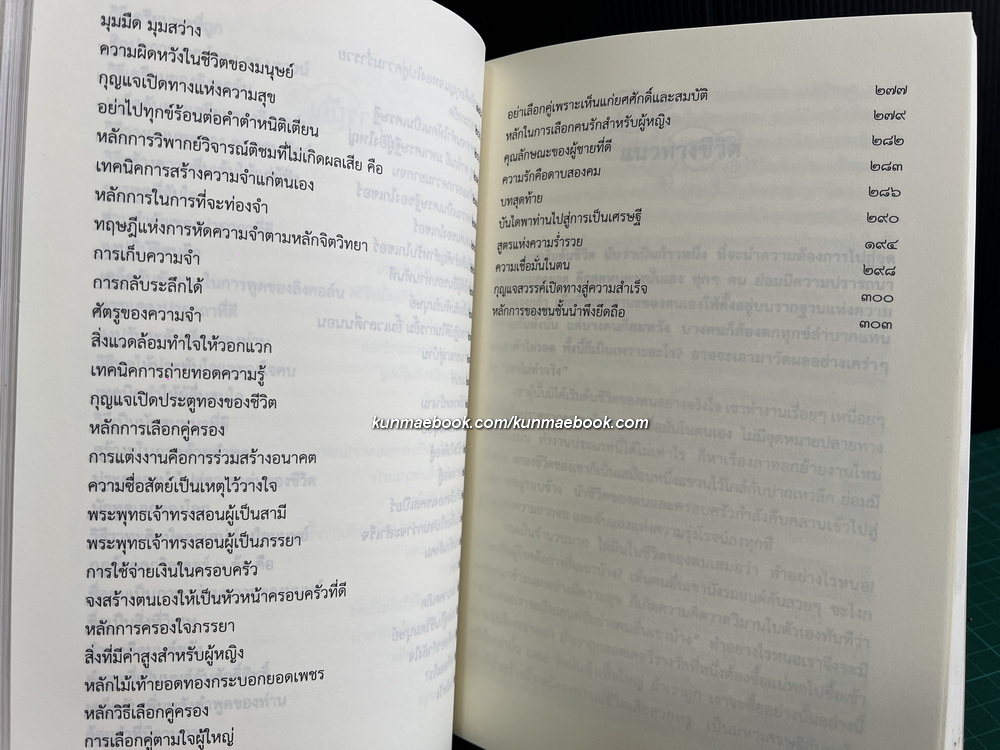 มุมมืด มุมสว่าง
ความผิดหวังในชีวิตของมนุษย์
กุญแจเปิดทางแห่งความสุข
อย่าไปทุกข์ร้อนต่อคำตำหนิติเตียน
หลักการวิพากย์วิจารณ์ติชมที่ไม่เกิดผลเสีย คือ
เทคนิคการสร้างความจำแก่ตนเอง
หลักการในการที่จะท่องจำ
ทฤษฎีแห่งการหัดความจำตามหลักจิตวิทยา
การเก็บความจำ
การกลับระลึกได้
ศัตรูของความจำ
สิ่งแวดล้อมทำใจให้วอกแวก
เทคนิคการถ่ายทอดความรู้
กุญแจเปิดประตูทองของชีวิต
หลักการเลือกคู่ครอง
การแต่งงานคือการร่วมสร้างอนาคต
ความซื่อสัตย์เป็นเหตุไว้วางใจ
พระพุทธเจ้าทรงสอนผู้เป็นสามี
พระพุทธเจ้าทรงสอนผู้เป็นภรรยา
การใช้จ่ายเงินในครอบครัว
จงสร้างตนเองให้เป็นหัวหน้าครอบครัวที่ดี
หลักการครองใจภรรยา
สิ่งที่มีค่าสูงสำหรับผู้หญิง
หลักไม้เท้ายอดทองกระบอกยอดเพชร
หลักวิธีเลือกคู่ครอง
การเลือกคู่ตามใจผู้ใหญ่
อย่าเลือกคู่เพราะเห็นแก่ยศศักดิ์และสมบัติ ๒๗๗
หลักในการเลือกคนรักสำหรับผู้หญิง ๒๗๙
คุณลักษณะของผู้ชายที่ดี ๒๘๒
ความรักคือดาบสองคม ๒๘๓
บทสุดท้าย ๒๘๖
บันไดพาท่านไปสู่การเป็นเศรษฐี ๒๙๐
สูตรแห่งความร่ำรวย ๑๙๔
ความเชื่อมั่นในตน ๒๙๘
กุญแจสวรรค์เปิดทางสู่ความสำเร็จ ๓๐๐
หลักการของชนชั้นนำพึงยึดถือ ๓๐๓
kunmaebook.com/kunmaebook.com